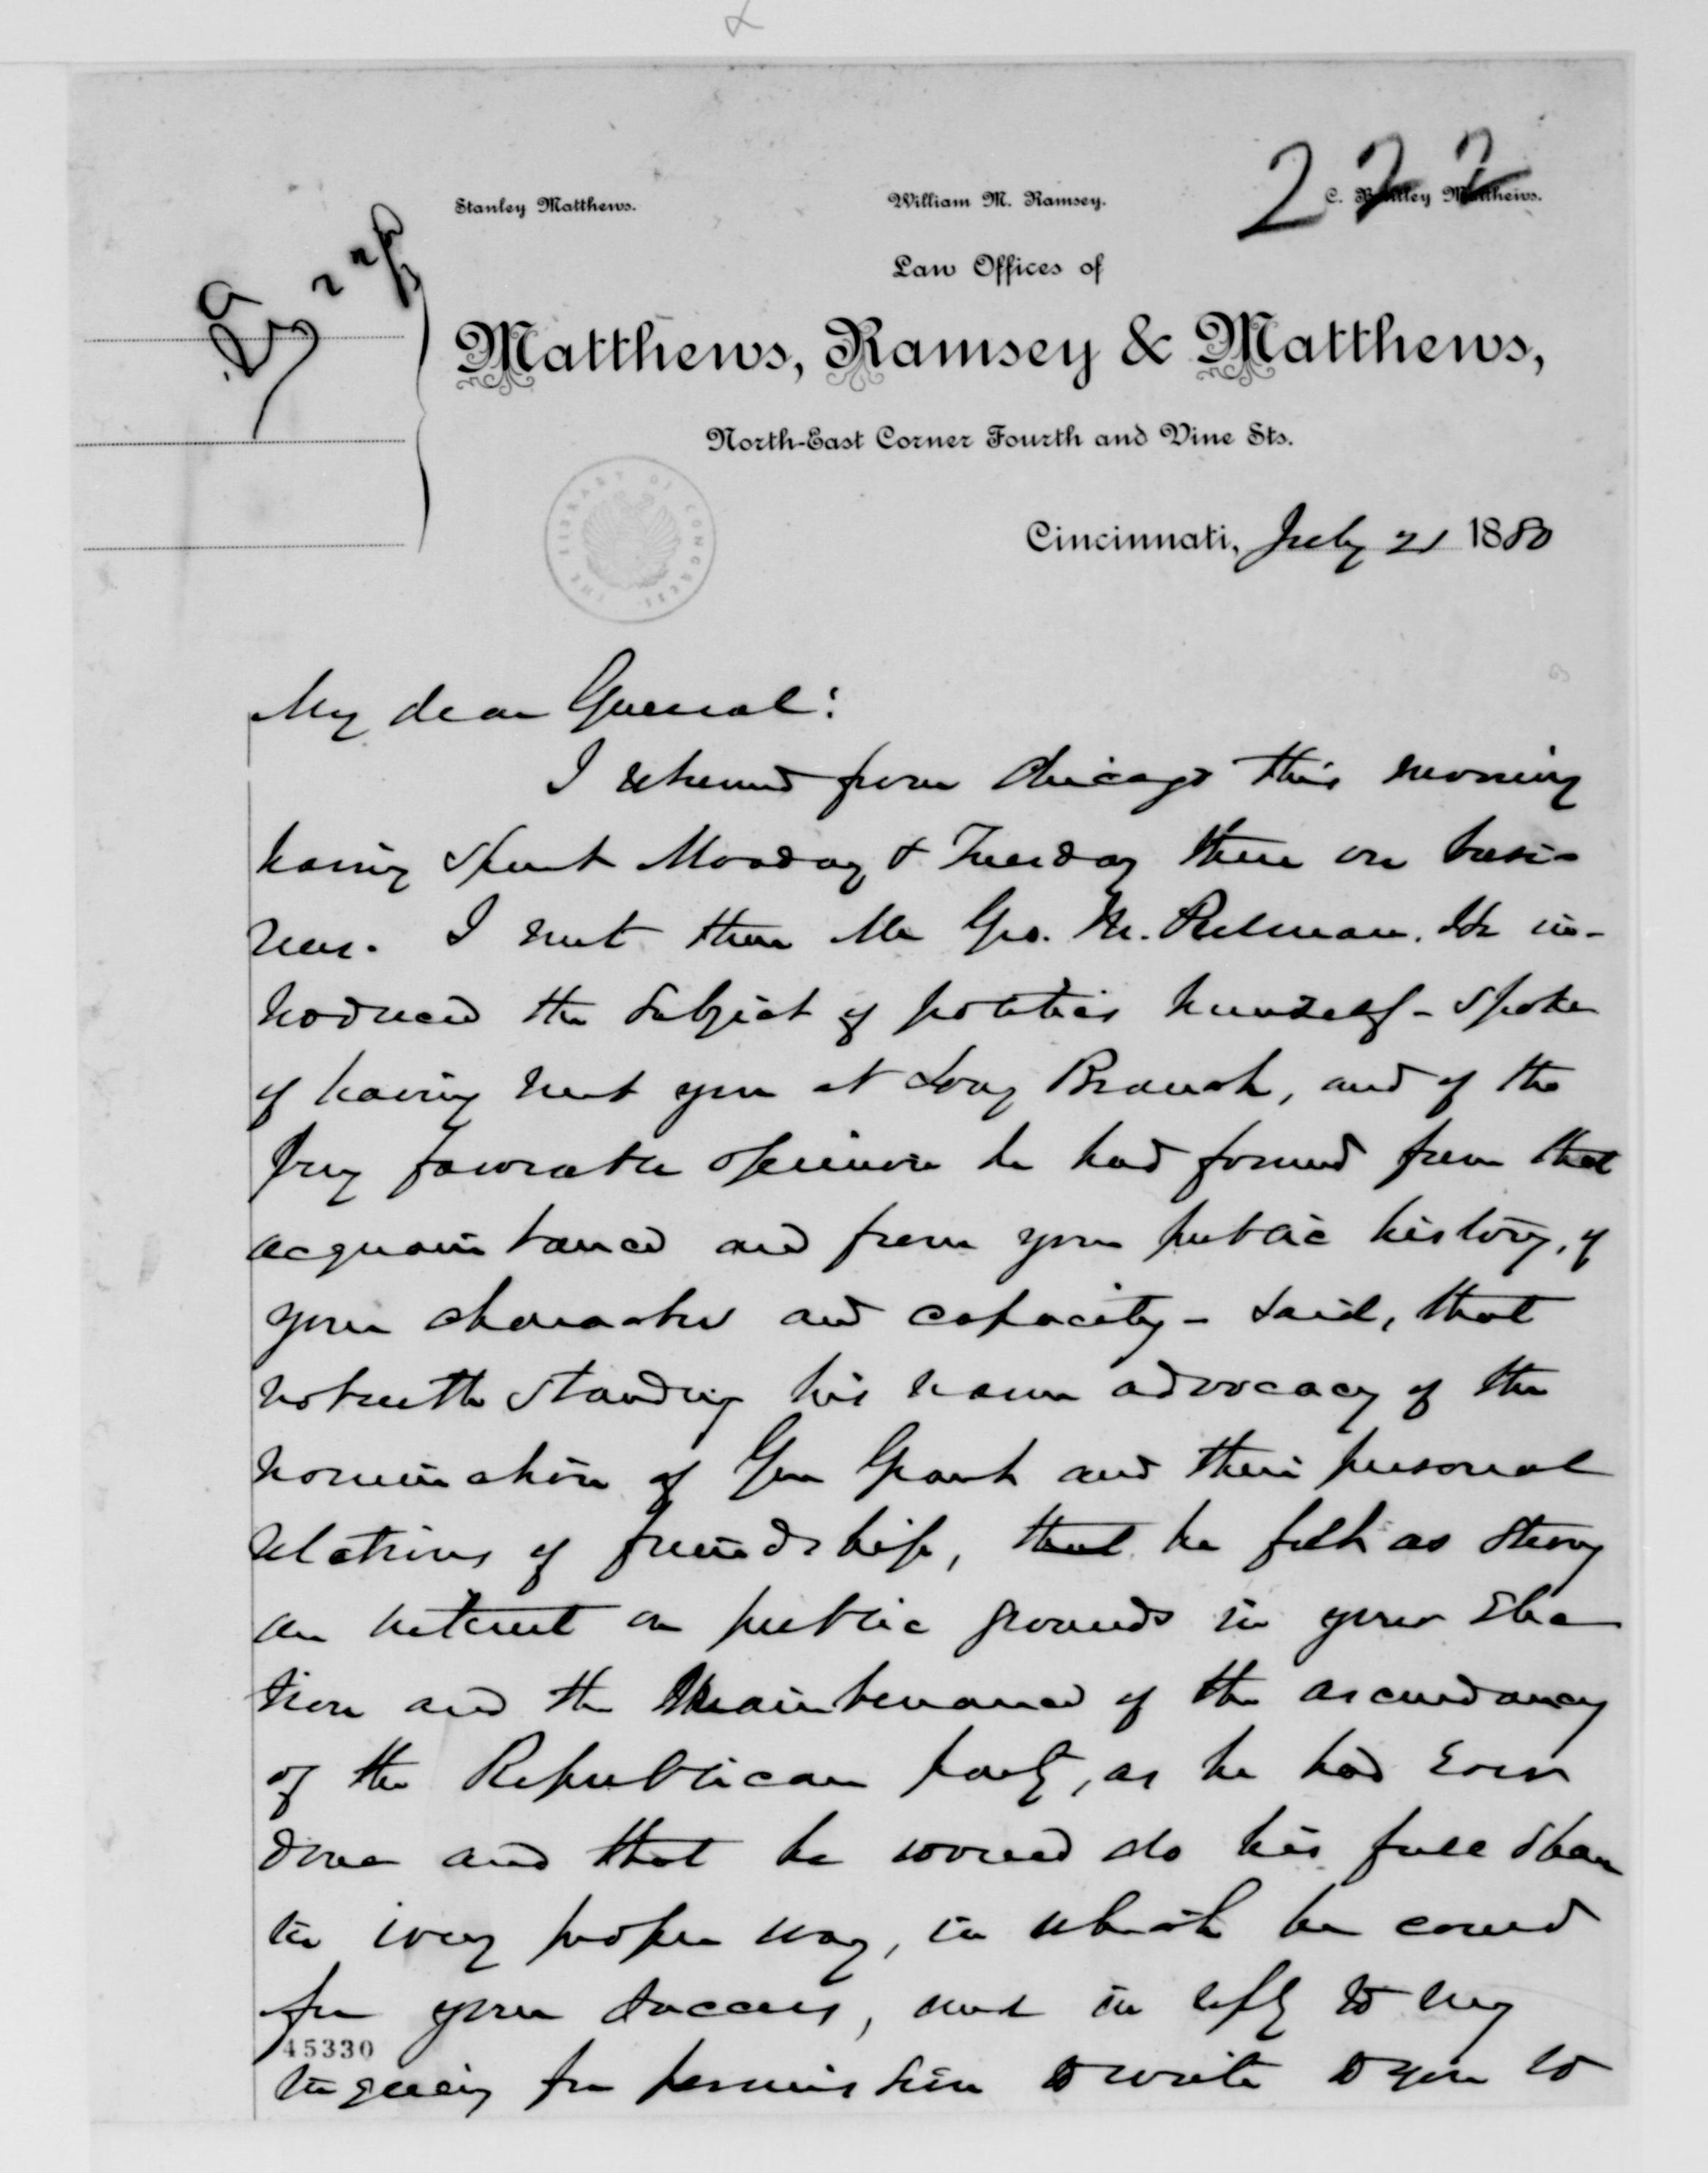 222
Stanley Matthews. William M. Ramsey. C. Bentley Matthews.
Law Offices of
Matthews, Ramsey & Matthews,
North-East Corner Fourth and Vine Sts.
THE LIBRARY OF CONGRESS
Cincinnati, July 21 1880
My dear General:
I returned from Chicago this morning
having spent Monday & Tuesday there on busi-
ness. I met there Mr Geo. M. Pullman. He in-
troduced the subject of politics himself - spoke
of having met you at Long Branch, and of the
very favorable opinion he had formed from that
acquaintance and from your public history, of
your character and capacity - said, that
notwithstanding his warm advocacy of the
nomination of Gen Grant and their personal
relations of friendship, that he felt as strong
an interest on public grounds in your elec
tion and the maintenance of the ascendancy
of the Republican party, as he had ever
done and that he would do his full share
in every proper way, in which he could
for your success, and in reply to my
inquiry for permission to write to you to
45330